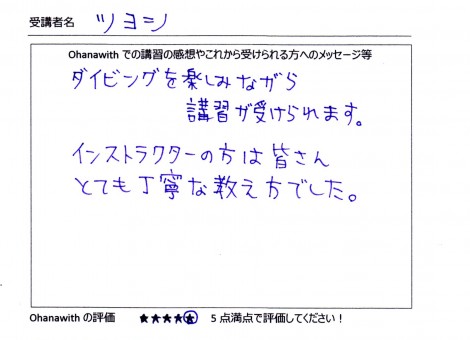 受講者名 ツヨシ
Ohanawith での講習の感想やこれから受けられる方へのメッセージ等
ダイビングを楽しみながら
講習が受けられます。
インストラクターの方は皆さん
とても丁寧な教え方でした。
Ohanawith の評価 ★★★★★ 5点満点で評価してください！